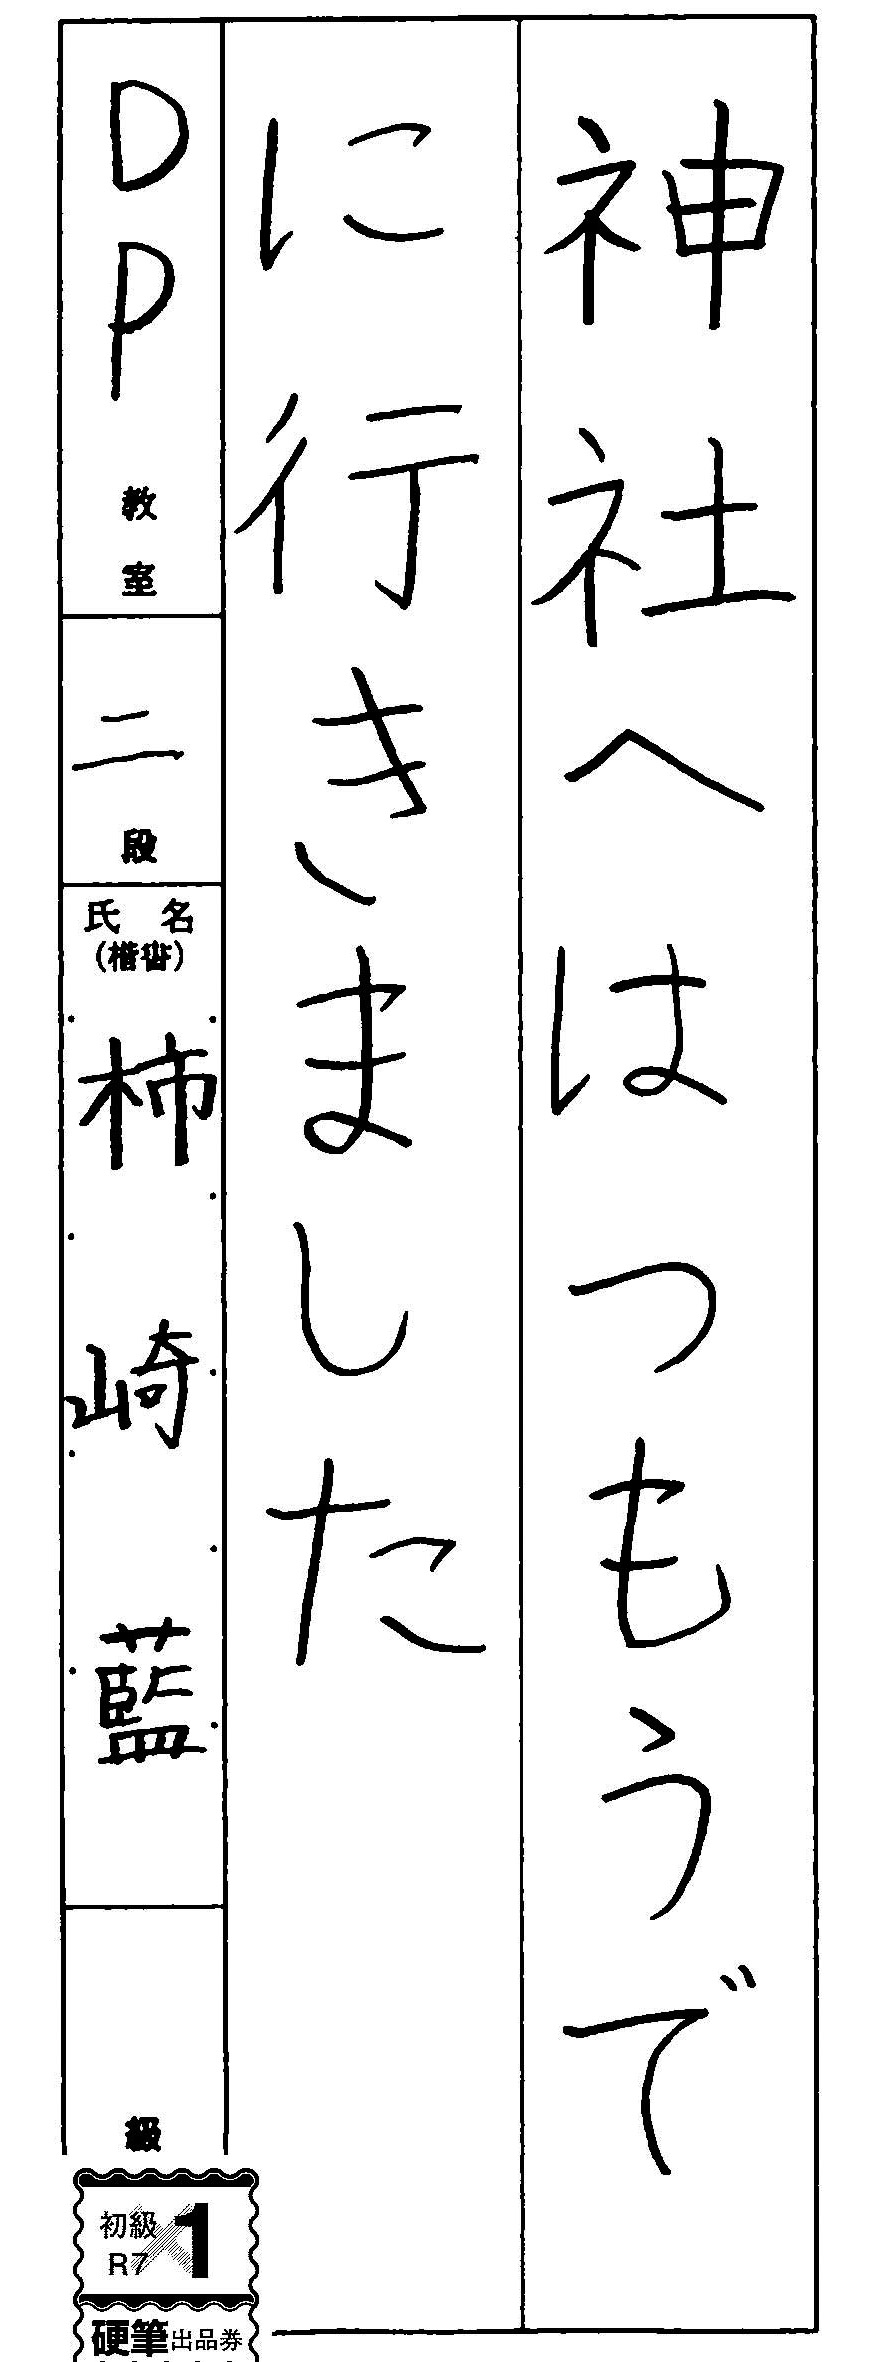 神社へはつもうで
に行きました
DP教室
二段
氏名
(楷書)
柿崎藍
級
初級
R7
1
硬筆出品券